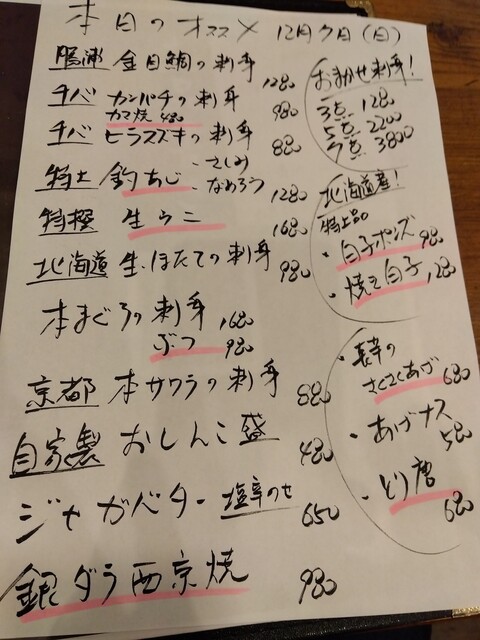 本日のオススメ 12月7日(日)
勝浦 金目鯛の刺身 1280
チバ カンパチの刺身 980
カマ焼 480
チバ ヒラスズキの刺身 880
特上 釣あじ ・さしみ ・なめろう 1280
特撰 生うに 1680
北海道 生ほたての刺身 980
本まぐろの刺身 1680
ぶつ 980
京都 本サワラの刺身 880
自家製 おしんこ盛 480
ジャガバター 塩辛のせ 650
銀ダラ西京焼 980
おまかせ刺身!
3点 1280
5点 2200
7点 3800
北海道産!
特上品
・白子ポンズ 980
・焼き白子 1280
・長芋の
さくさくあげ 680
・あげナス 580
・とり唐 680